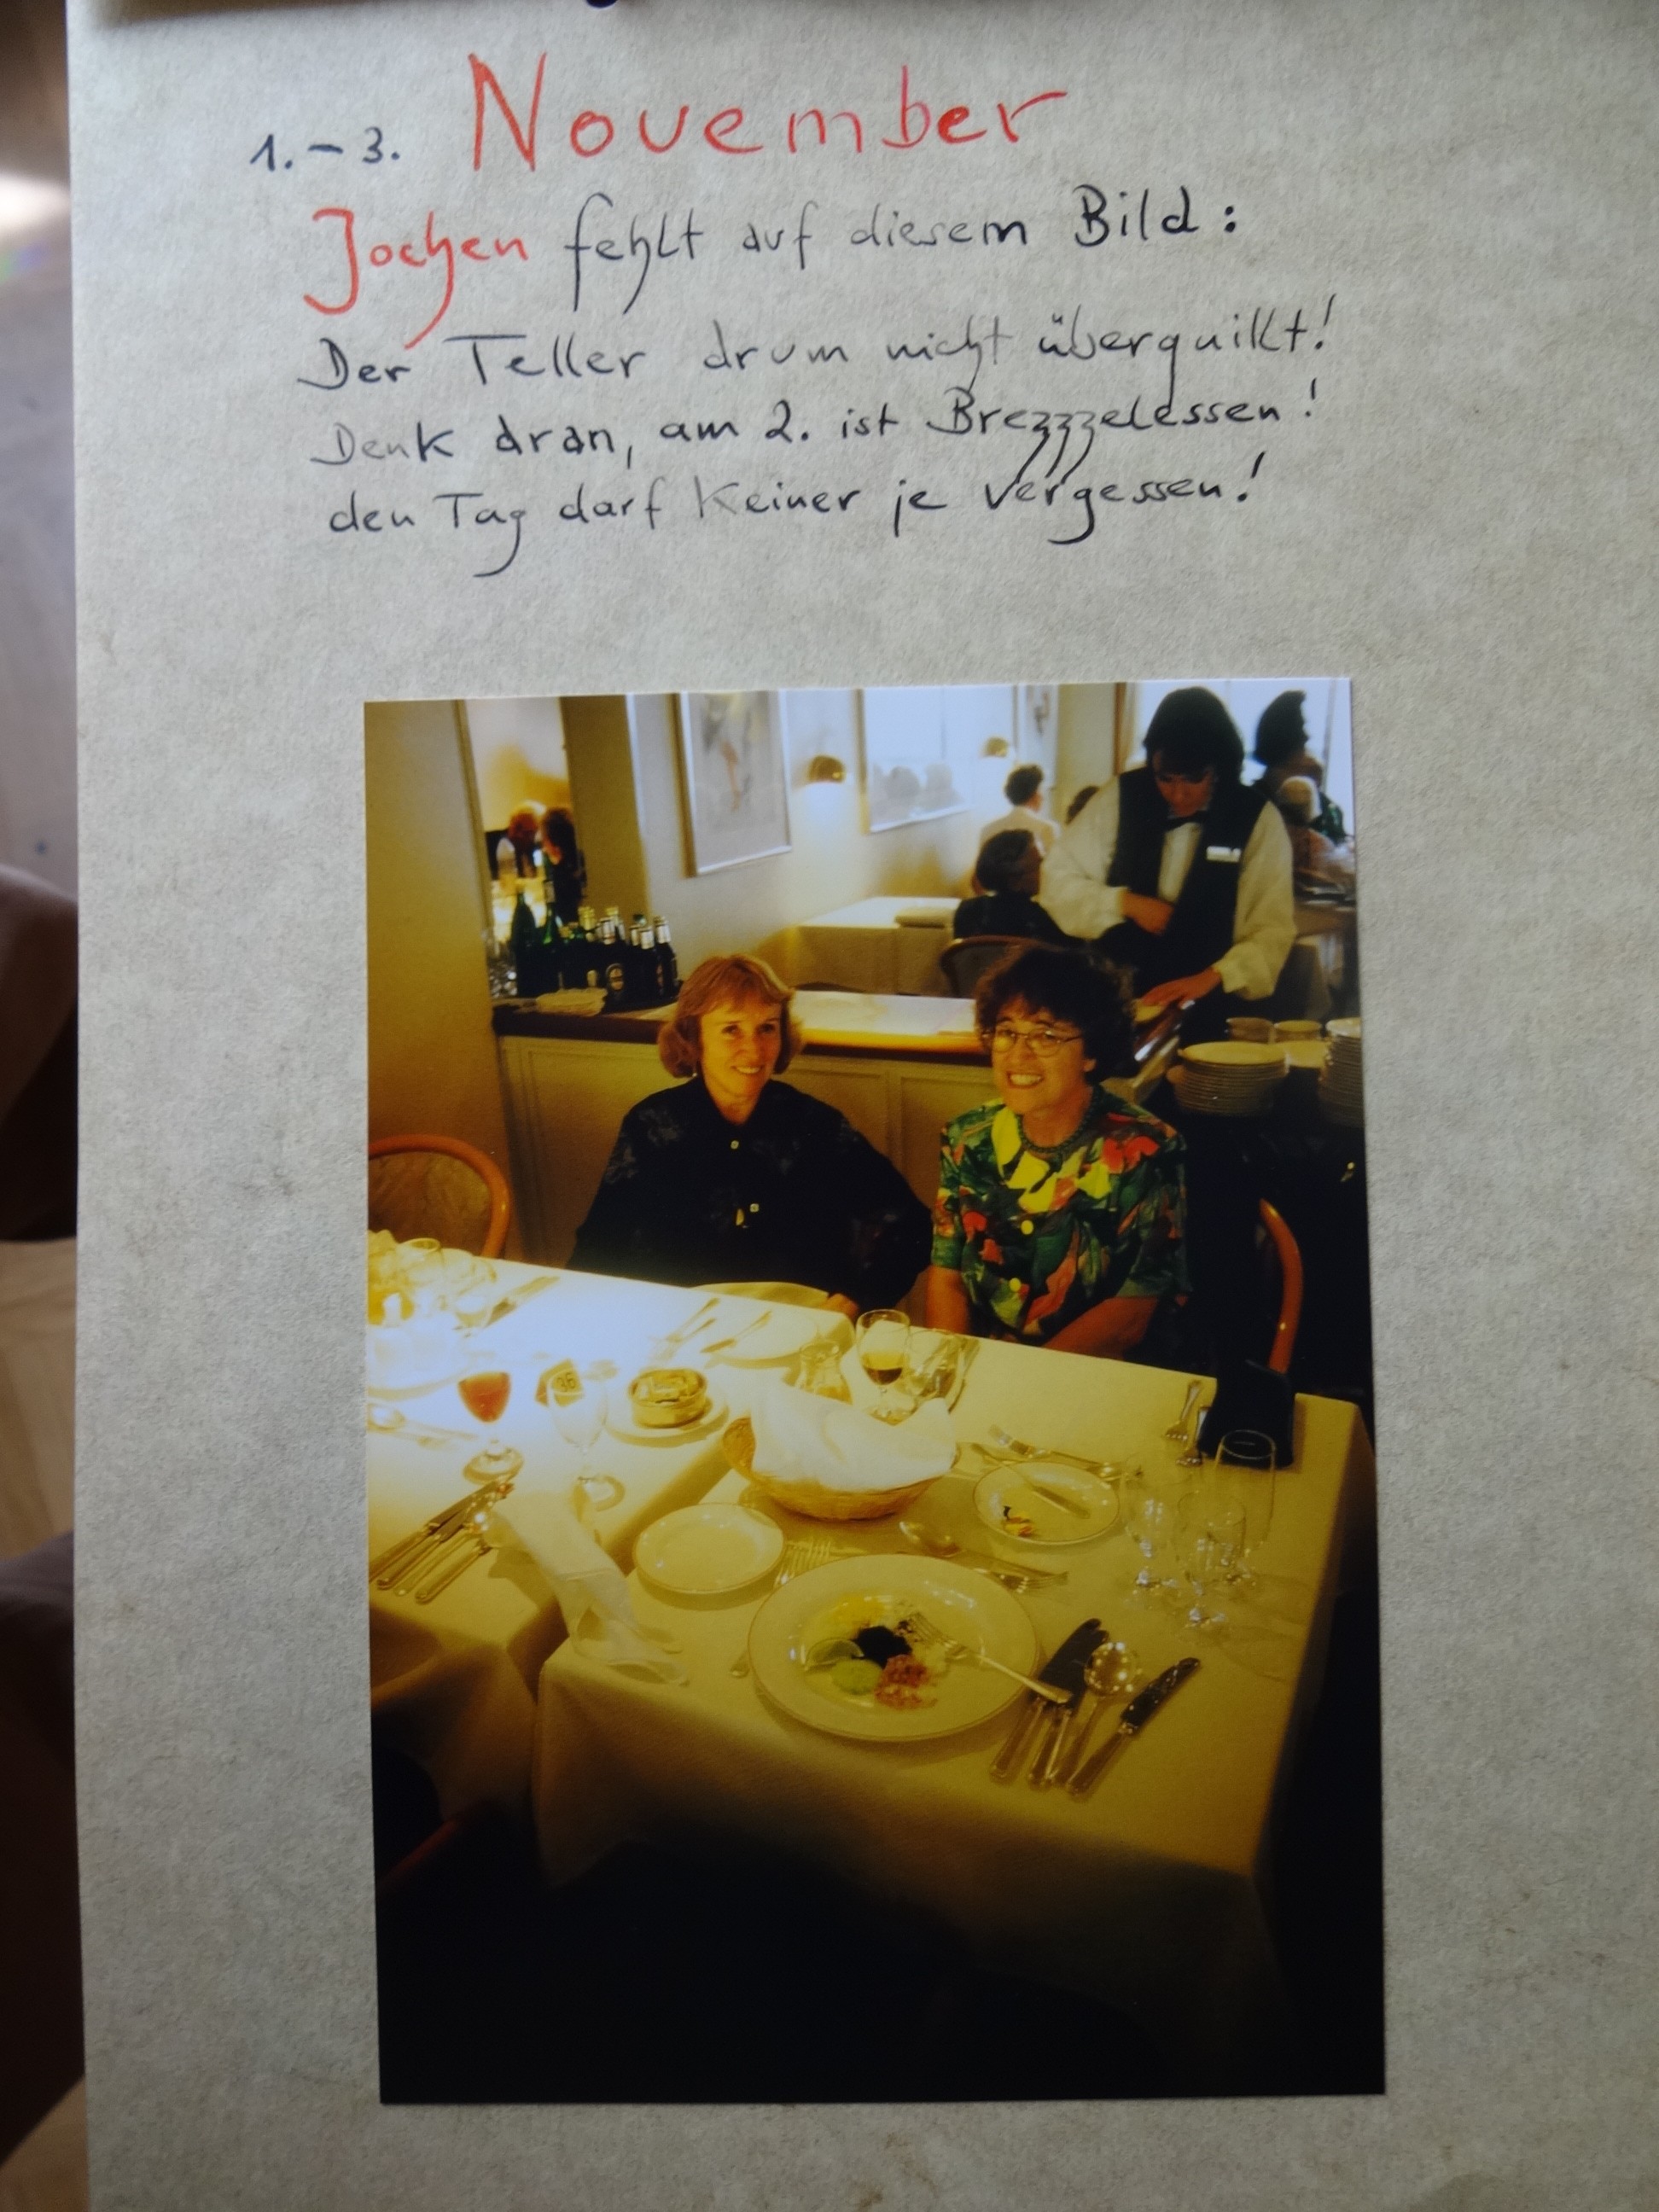 1.-3. November
Jochen fehlt auf diesem Bild:
Der Teller drum nicht überquikt!
Denk dran, am 2. ist Brezzzelessen!
den Tag darf Keiner je vergessen!
36